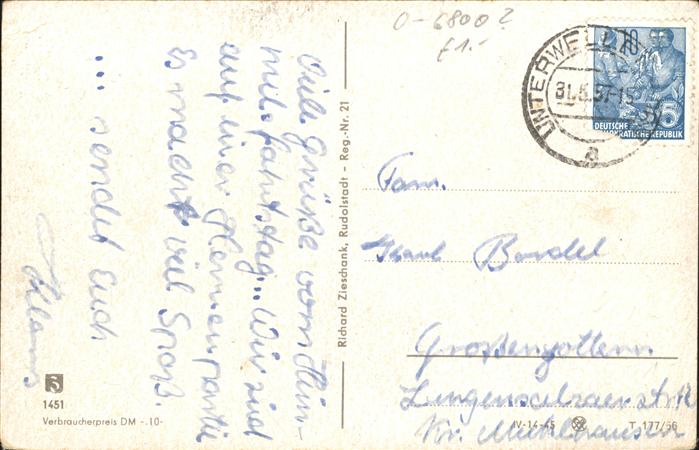 O-6800?
£1.-
Viele Grüße vom Him-
melfahrtstag. Wir sind
auf einer Herrenpartie
Es macht viel Spaß.
... sendet Euch
Klaus
Richard Zieschank, Rudolstadt – Reg.-Nr. 21
UNTERWELL
31.5.57-15
a
10
DEUTSCHE
DEMOKRATISCHE REPUBLIK
Fam.
Bordel
Großengottern
Langensalzaerstr
Kr. Mühlhausen
1451
Verbraucherpreis DM -.10-
IV-14-45
T 177/56